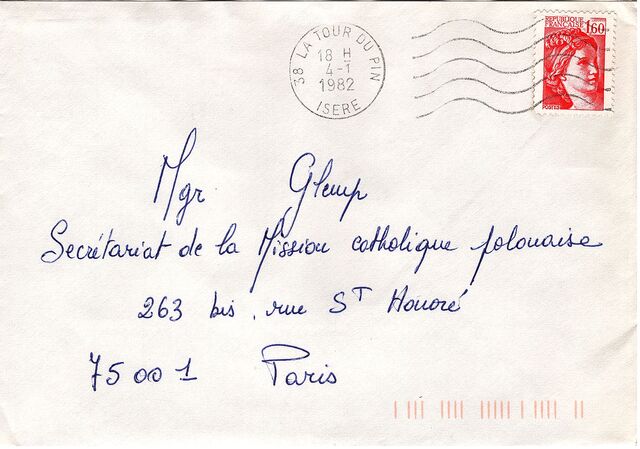 38 LA TOUR DU PIN
18 H
4-1
1982
ISERE
REPUBLIQUE
FRANCAISE 1,60
Mgr Glemp
Secrétariat de la Mission catholique polonaise
263 bis, rue ST Honoré
75001 Paris